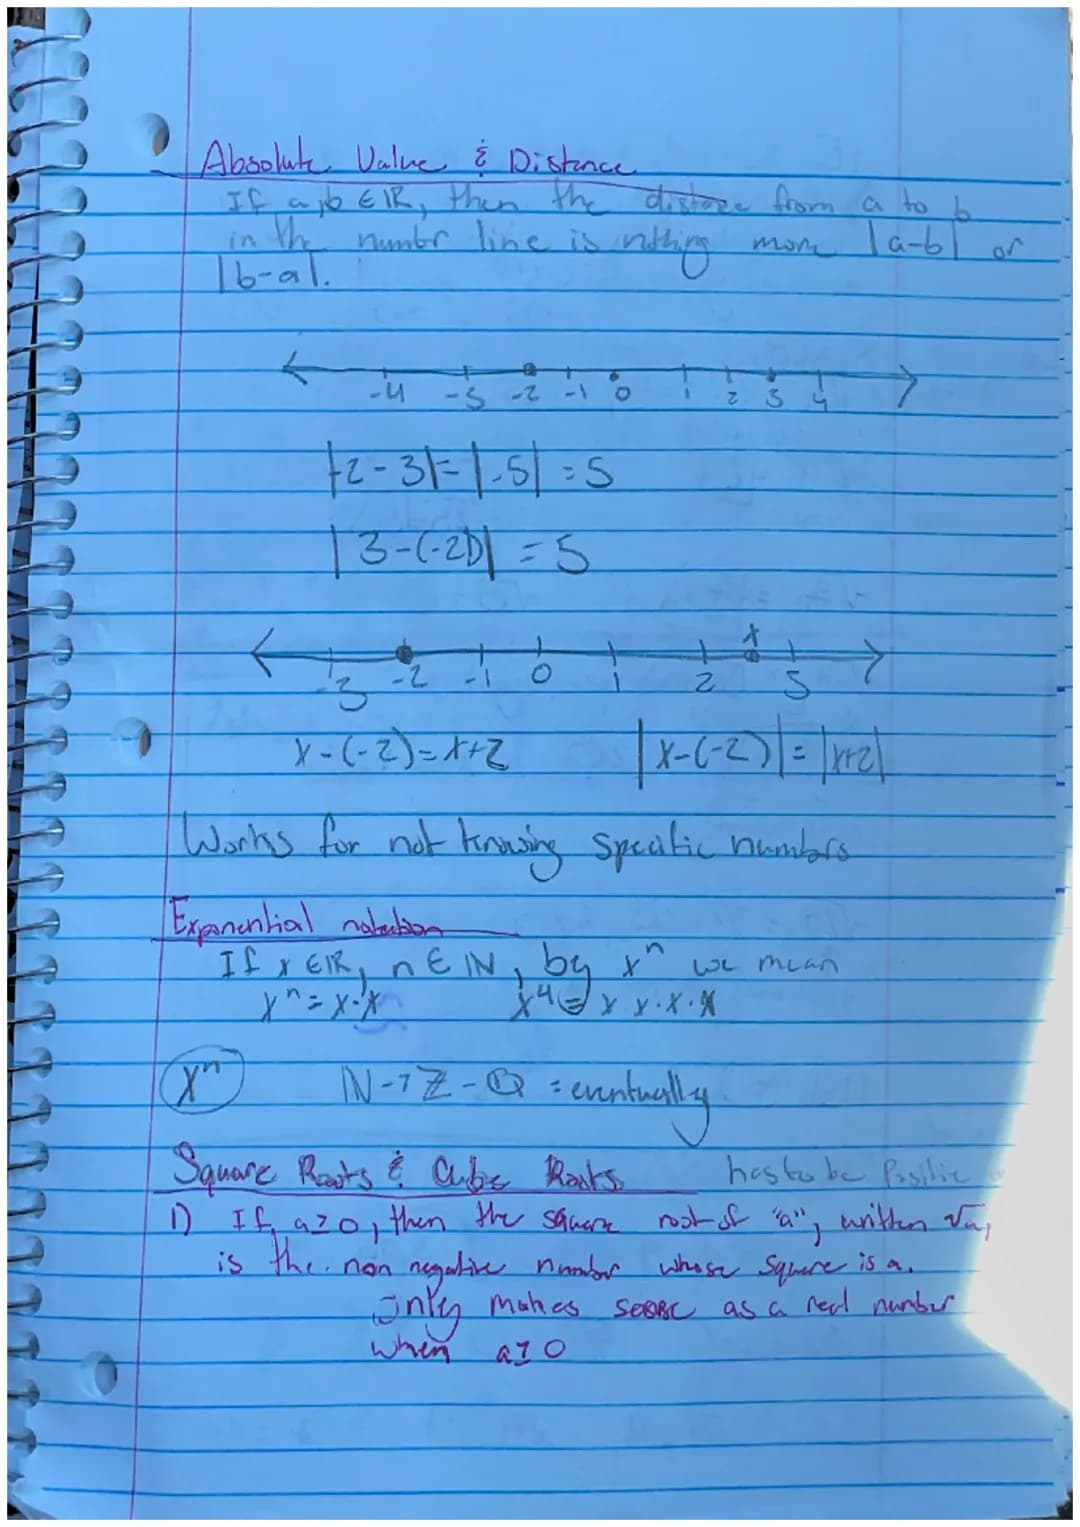 Absolute Value & Distance
If a,b ∈ ℝ, then the distance from a to b
in the number line is nothing more |a-b| or
|b-a|.
-4 -3 -2 -1 0 1 2 3 4
|-2-3|=|-5|=5
|3-(-2)|=5
x
-3 -2 -1 0 1 2 3
x-(-2)=x+2 |x-(-2)|=|x+2|
Works for not knowing specific numbers
Exponential notation
If x ∈ ℝ, n ∈ ℕ, by xⁿ we mean
xⁿ = x·x x⁴ = x x·x·x
xⁿ ℕ→ℤ-ℚ = eventually
Square Roots & Cube Roots has to be Positive
1) If a≥0, then the square root of "a", written √a,
is the non negative number whose square is a.
only makes sense as a real number
when a≥0